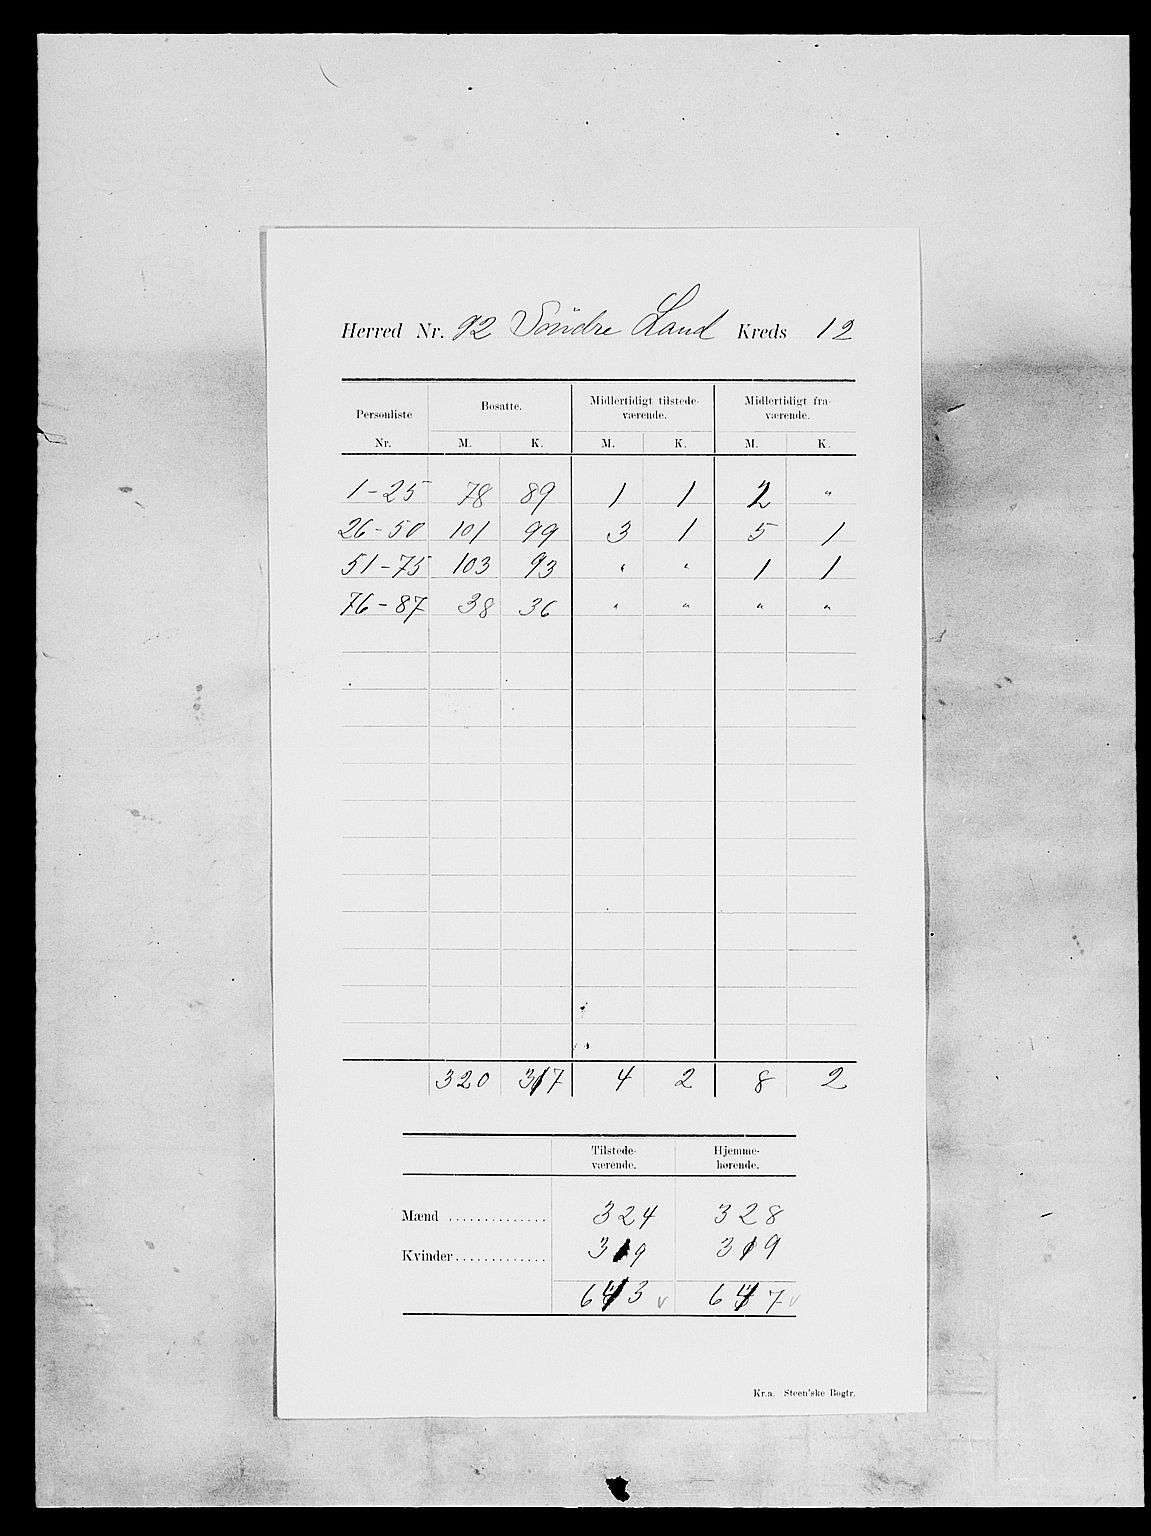 Herred Nr. 92 Söndre Land Kreds 12
Personliste Bosatte. Midlertidigt tilstede- Midlertidigt fra-
værende. værende.
Nr. M. K. M. K. M. K.
1-25 78 89 1 1 2 "
26-50 101 99 3 1 5 1
51-75 103 93 " " 1 1
76-87 38 36 " " " "
320 317 4 2 8 2
Tilstede- Hjemme-
værende. hørende.
Mænd .............. 324 328
Kvinder ............. 319 319
643 v 647 v
Kr.a. Steen'ske Bogtr.